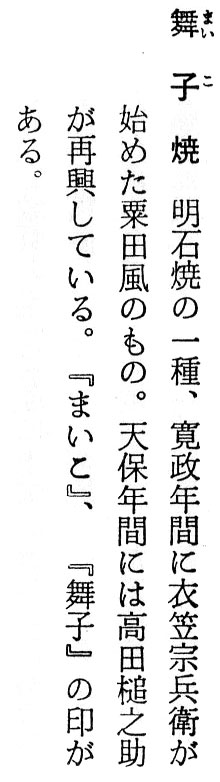 舞子焼　明石焼の一種、寛政年間に衣笠宗兵衛が
始めた粟田風のもの。天保年間には高田槌之助
が再興している。『まいこ』、『舞子』の印が
ある。